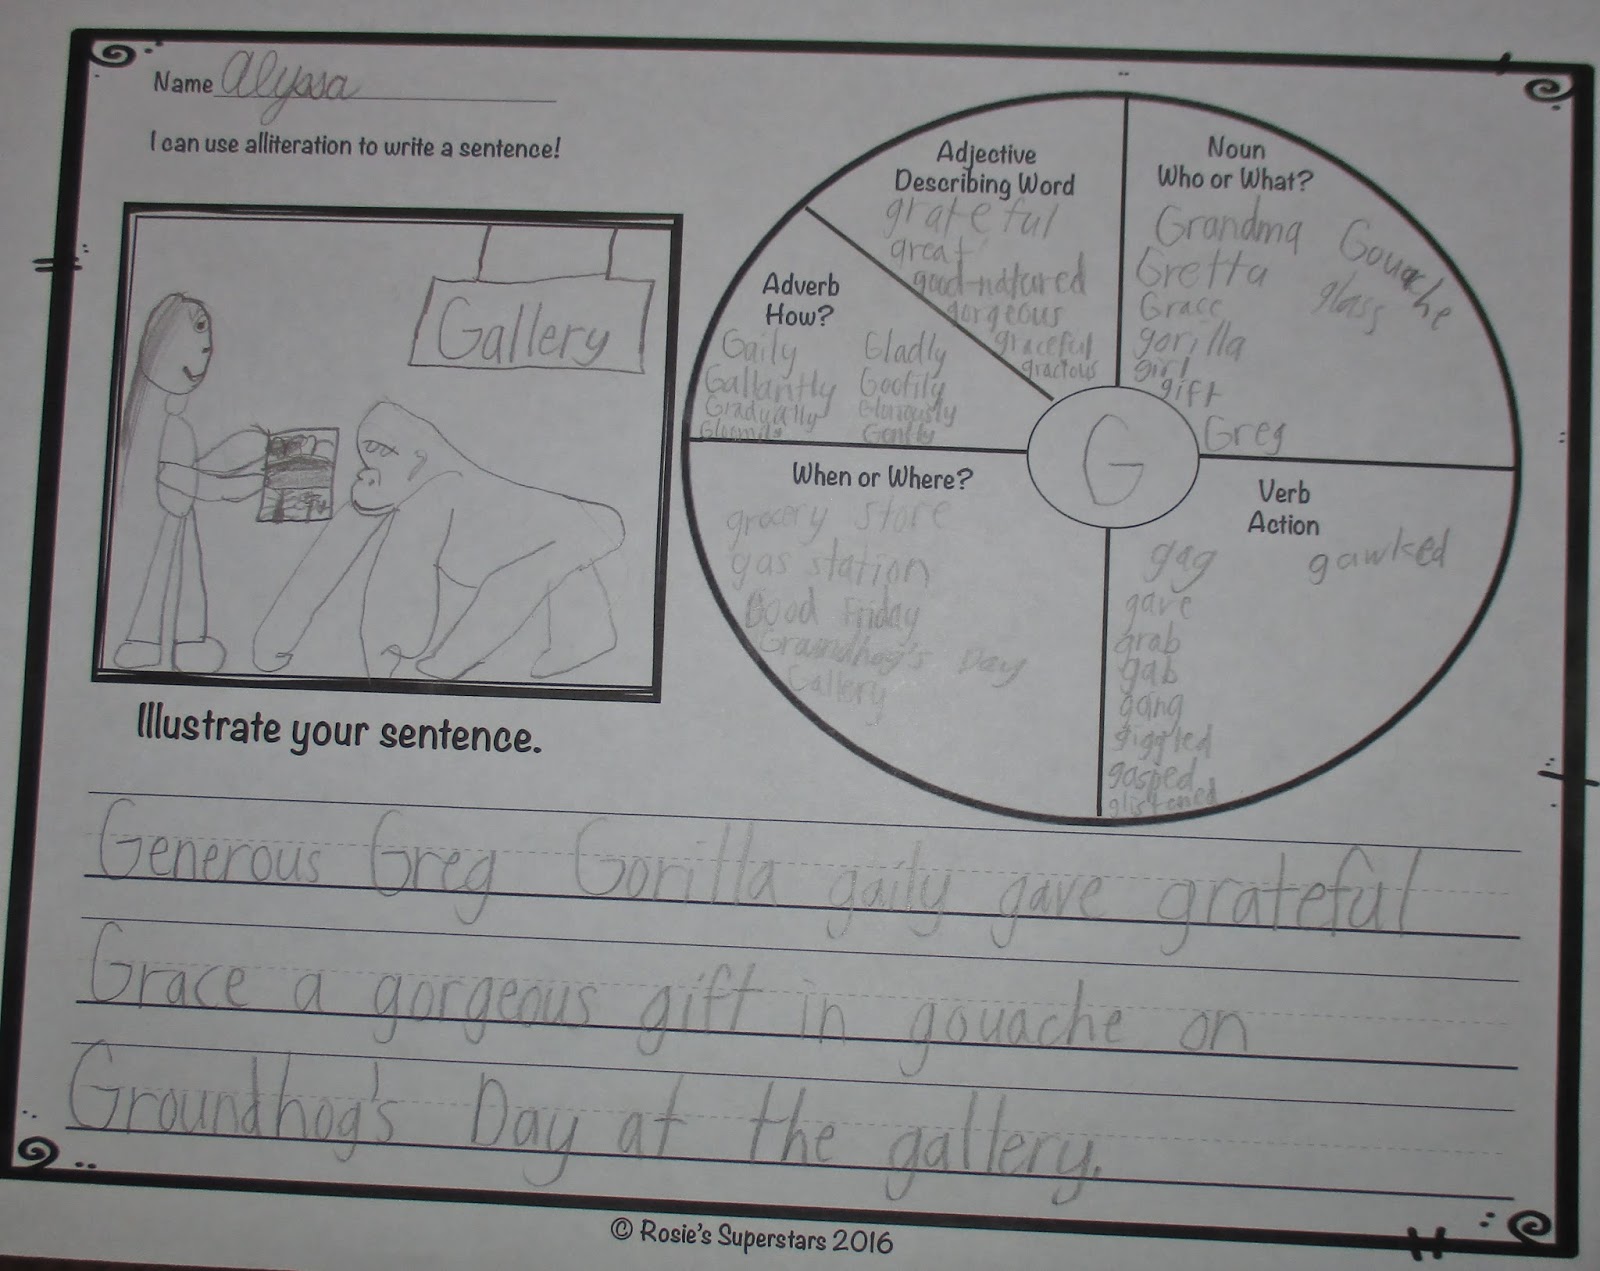 Name Alyssa
I can use alliteration to write a sentence!
Gallery
Illustrate your sentence.
Adjective
Describing Word
grateful
great
good-natured
gorgeous
graceful
gracious
Noun
Who or What?
Grandma Gouache
Gretta glass
Grace
gorilla
girl
gift
Greg
Adverb
How?
Gaily Gladly
Gallantly Goofily
Gradually Gloriously
Gently
G
When or Where?
grocery store
gas station
Good Friday
Groundhog's Day
Gallery
Verb
Action
gag gawked
gave
grab
gab
gang
giggled
gasped
glistened
Generous Greg Gorilla gaily gave grateful
Grace a gorgeous gift in gouache on
Groundhog's Day at the gallery.
© Rosie's Superstars 2016